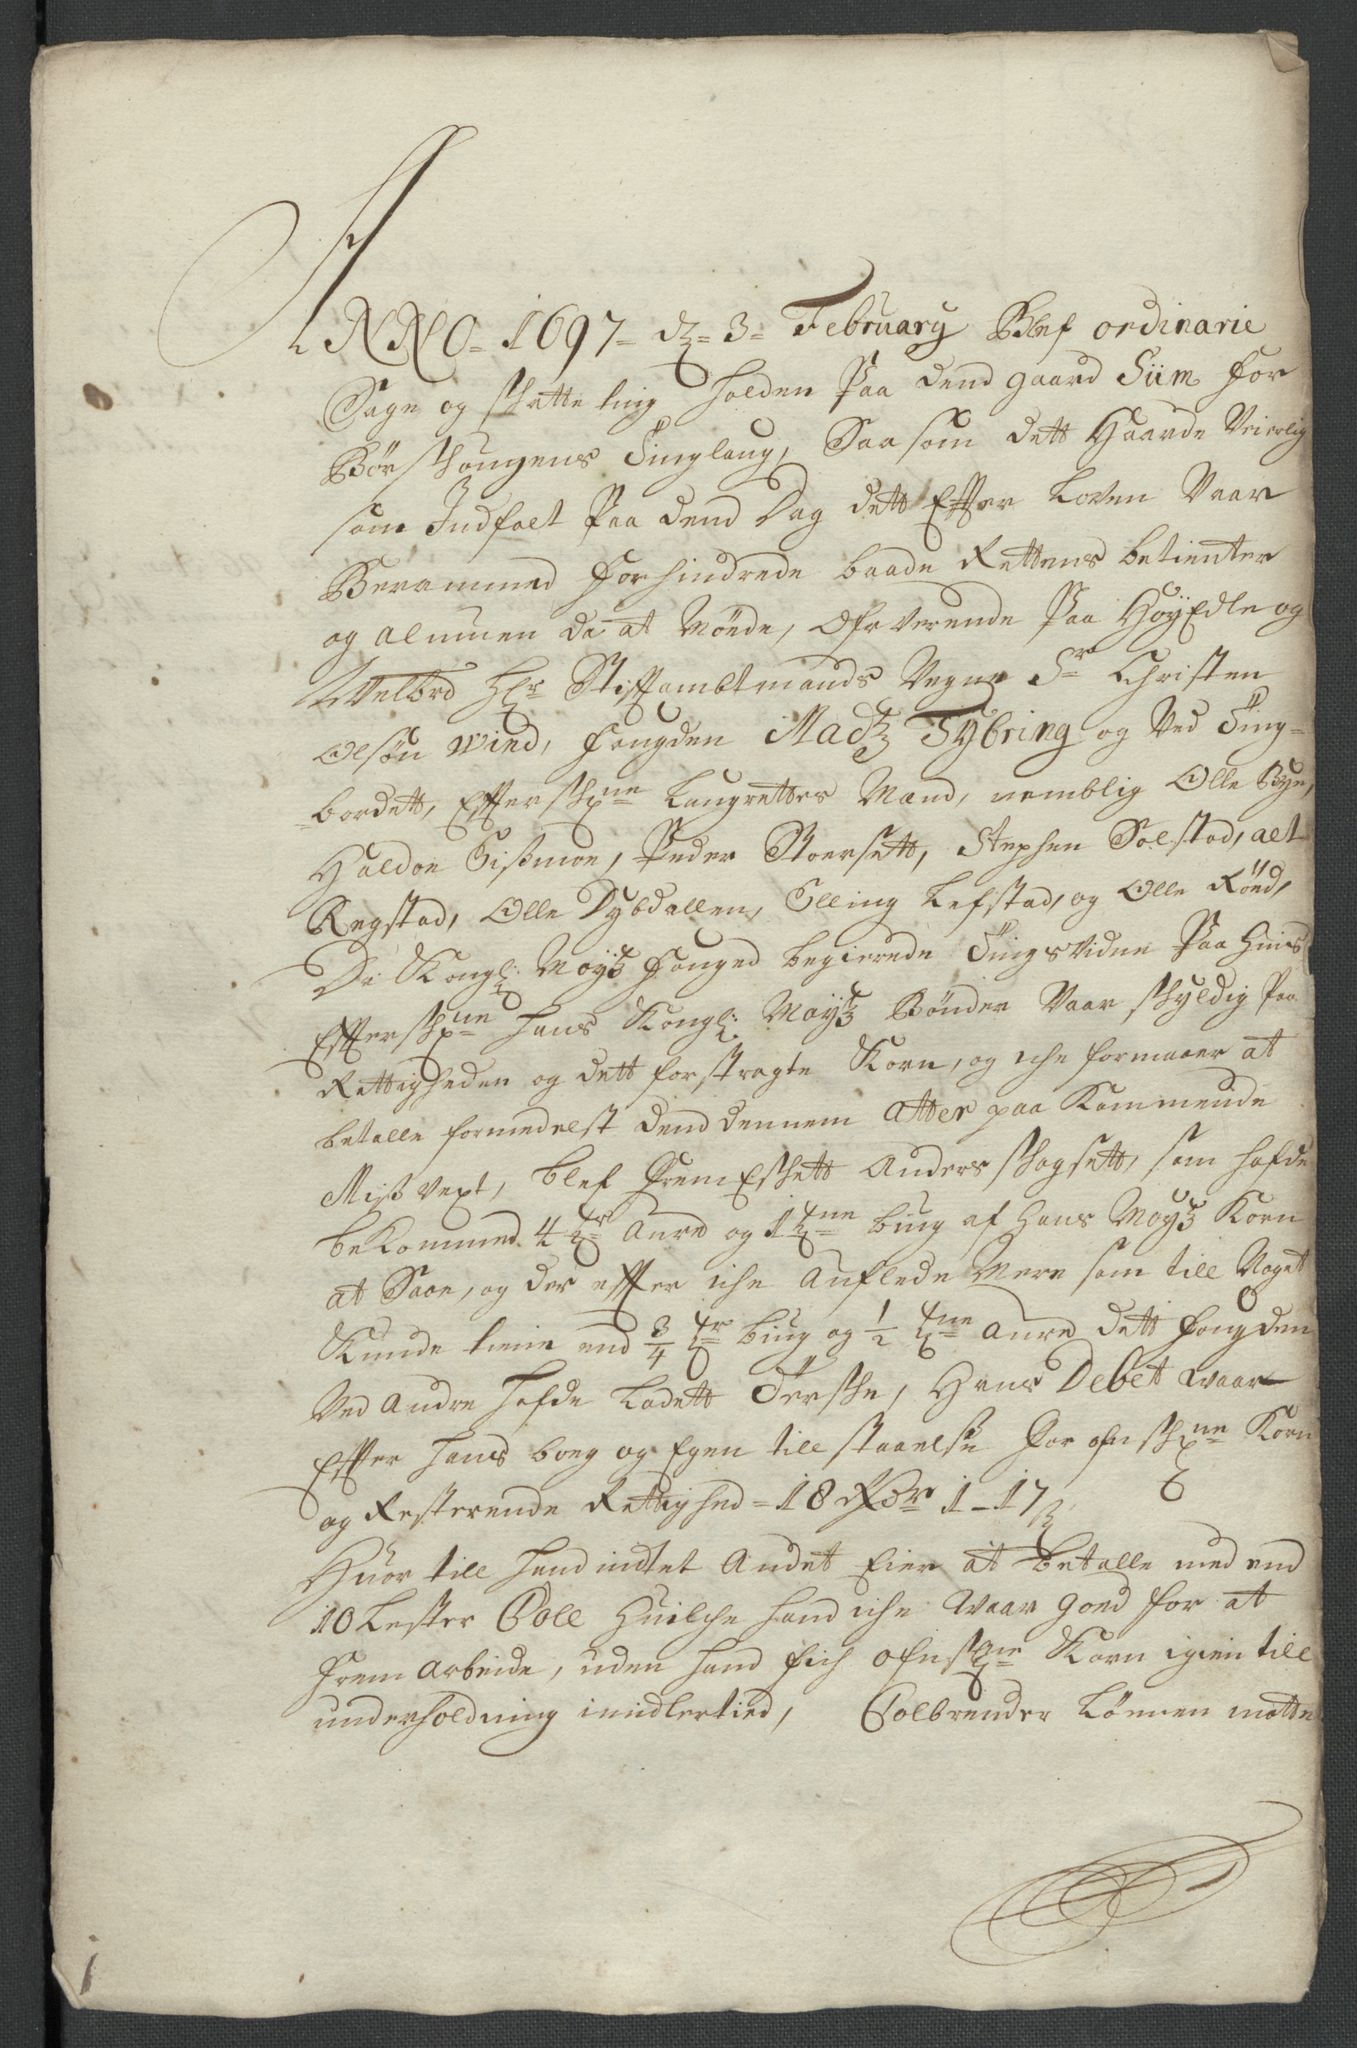 ANNO = 1697 = dz = 3 = February Blef ordinarie
Sage og skatte ting holden Paa dend gaard Siim for
Børskougens Tinglaug, Saasom dett Haarde Veierlig
som Indfalt Paa dend Dag dett Effter Loven Vaar
Berammed forhindrede baade Rettens betienter
og almuen da at Møede, Ofrverende Paa HøyEdle og
Welbrd Hr Stiftambtmands Vegne Sr Christen
Olsøn Wind, fougden Madtz Tybring og Ved Ting=
=bordett, Effterschne Laugrettes Mænd, nemblig Olle Bye,
Haldoe Sissmoe, Peder Stoersett, Stephen Solstad, alt
Regstad, Olle Dybdallen, Elling Lefstad, og Olle Røed,
Da Kongl: Maytz fouged begierede Tingsvidne Paa huis
Effterschne hans Kongl: Maytz Bønder Vaar skyldig Paa
Rettigheden og dett forstragte Korn, og iche formaaer at
betalle formedelst dend dennem atter paa Kommende
Missvext, blef fremEskett Anders Skogsett, som hafde
beKommed 4 tr aure og 1 tne biug af Hans Maytz Korn
at Saae, og der effter iche Auflede Mere som till Noget
Kunde tiene end 3/4 tr biug og 1/2 tne aure dett fougden
Ved andre hafde Ladett Tørske, Hans Debet Waar
Effter hans boeg og Egen till staaelse for ofnschne Korn
og Resterende Rettighed = 18 Rdr 1 - 17 ß
Huor till hand indtet Andet Eier at betalle med end
10 Lester Coll Huilche hand iche Waar goed for at
frem arbeide, uden hand fich ofnschne Korn igien till
underholdning imidlertied, Colbrender Lønnen motte
1